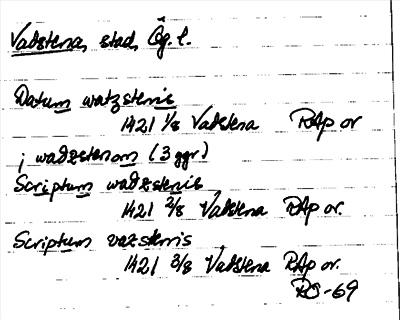 Vadstena, stad, Ög. l.
Datum watzstenis
1421 1/8 Vadstena RAp or
i wadzstenom (3 ggr)
Scriptum wadzstenis
1421 2/8 Vadstena RAp or.
Scriptum vazstenis
1421 3/8 Vadstena RAp or.
RO-69